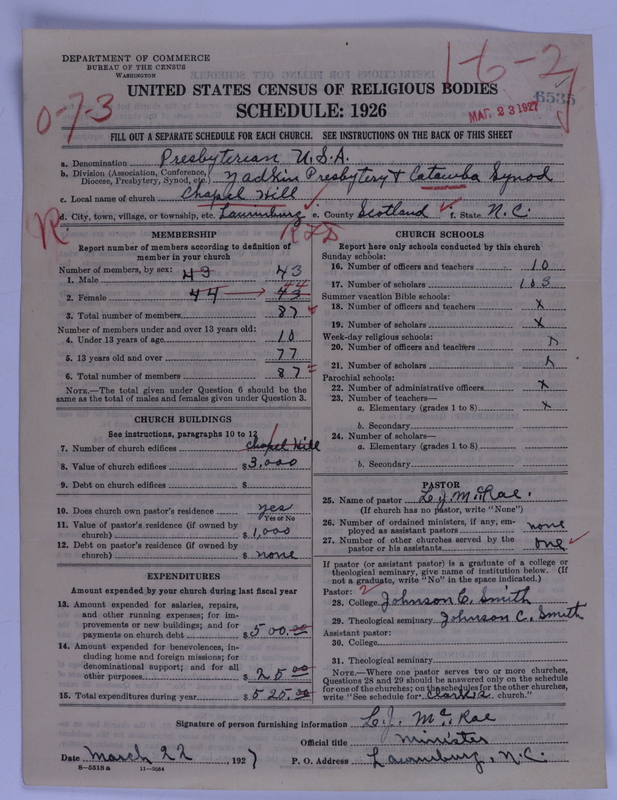 DEPARTMENT OF COMMERCE
BUREAU OF THE CENSUS
WASHINGTON
1-6-2
0-7-3
UNITED STATES CENSUS OF RELIGIOUS BODIES
6535
SCHEDULE: 1926
MAR 23 1927
FILL OUT A SEPARATE SCHEDULE FOR EACH CHURCH. SEE INSTRUCTIONS ON THE BACK OF THIS SHEET
a. Denomination Presbyterian U.S.A.
b. Division (Association, Conference, Diocese, Presbytery, Synod, etc.) Yadkin Presbytery & Catawba Synod
c. Local name of church Chapel Hill
d. City, town, village, or township, etc. Laurinburg e. County Scotland f. State N.C.
R
RFD
MEMBERSHIP
Report number of members according to definition of
member in your church
Number of members, by sex:
1. Male 43 43
2. Female 44 43 44
3. Total number of members 87
Number of members under and over 13 years old:
4. Under 13 years of age 10
5. 13 years old and over 77
6. Total number of members 87
NOTE.—The total given under Question 6 should be the
same as the total of males and females given under Question 3.
CHURCH BUILDINGS
See instructions, paragraphs 10 to 12
7. Number of church edifices Chapel Hill
8. Value of church edifices $3,000
9. Debt on church edifices $
10. Does church own pastor's residence yes
Yes or No
11. Value of pastor's residence (if owned by
church) $1,000
12. Debt on pastor's residence (if owned by
church) $ none
EXPENDITURES
Amount expended by your church during last fiscal year
13. Amount expended for salaries, repairs,
and other running expenses; for im-
provements or new buildings; and for
payments on church debt $500.00
14. Amount expended for benevolences, in-
cluding home and foreign missions; for
denominational support; and for all
other purposes $25.00
15. Total expenditures during year $525.00
CHURCH SCHOOLS
Report here only schools conducted by this church
Sunday schools:
16. Number of officers and teachers 10
17. Number of scholars 103
Summer vacation Bible schools:
18. Number of officers and teachers x
19. Number of scholars x
Week-day religious schools:
20. Number of officers and teachers x
21. Number of scholars x
Parochial schools:
22. Number of administrative officers x
23. Number of teachers—
a. Elementary (grades 1 to 8) x
b. Secondary
24. Number of scholars—
a. Elementary (grades 1 to 8)
b. Secondary
PASTOR
25. Name of pastor L. J. McRae.
(If church has no pastor, write "None")
26. Number of ordained ministers, if any, em-
ployed as assistant pastors none
27. Number of other churches served by the
pastor or his assistants one
If pastor (or assistant pastor) is a graduate of a college or
theological seminary, give name of institution below. (If
not a graduate, write "No" in the space indicated.)
Pastor: 2
28. College Johnson C. Smith
29. Theological seminary Johnson C. Smith
Assistant pastor:
30. College
31. Theological seminary
NOTE.—Where one pastor serves two or more churches,
Questions 28 and 29 should be answered only on the schedule
for one of the churches; on the schedules for the other churches,
write "See schedule for church."
Signature of person furnishing information L. J. McRae
Official title Minister
Date March 22, 1927 P. O. Address Laurinburg, N.C.
8-5518a 11-9054